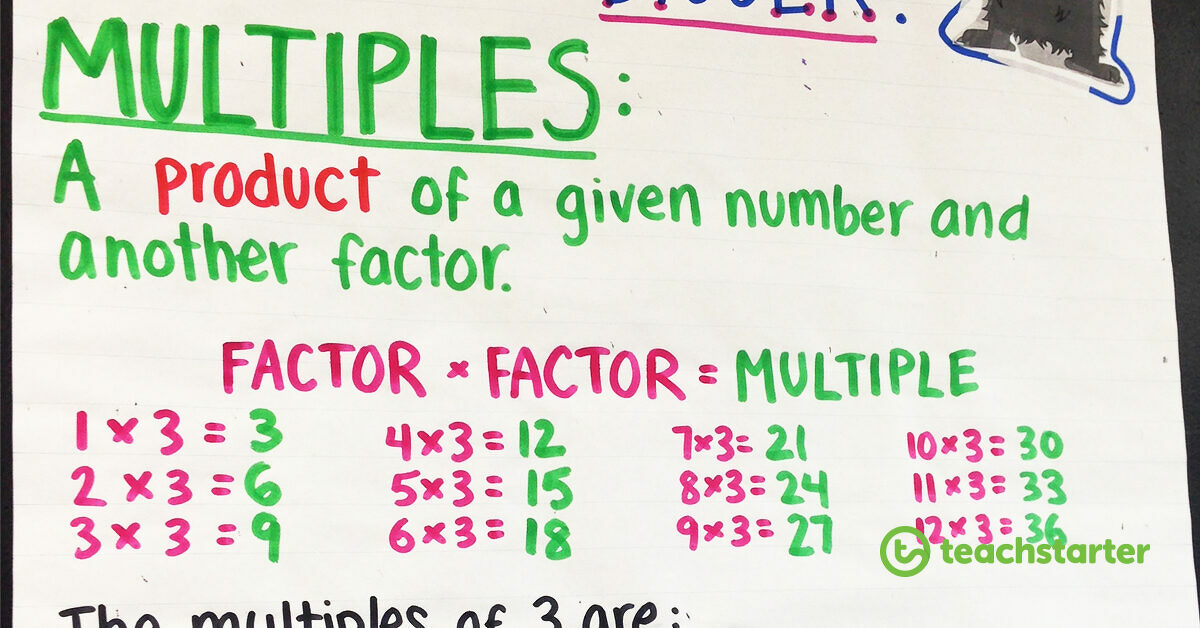 BIGGER.
MULTIPLES:
A product of a given number and
another factor.
FACTOR × FACTOR = MULTIPLE
1 × 3 = 3 4×3= 12 7×3= 21 10×3= 30
2 × 3 = 6 5×3= 15 8×3= 24 11×3= 33
3 × 3 = 9 6×3= 18 9×3= 27 12×3= 36
teachstarter
The multiples of 3 are: